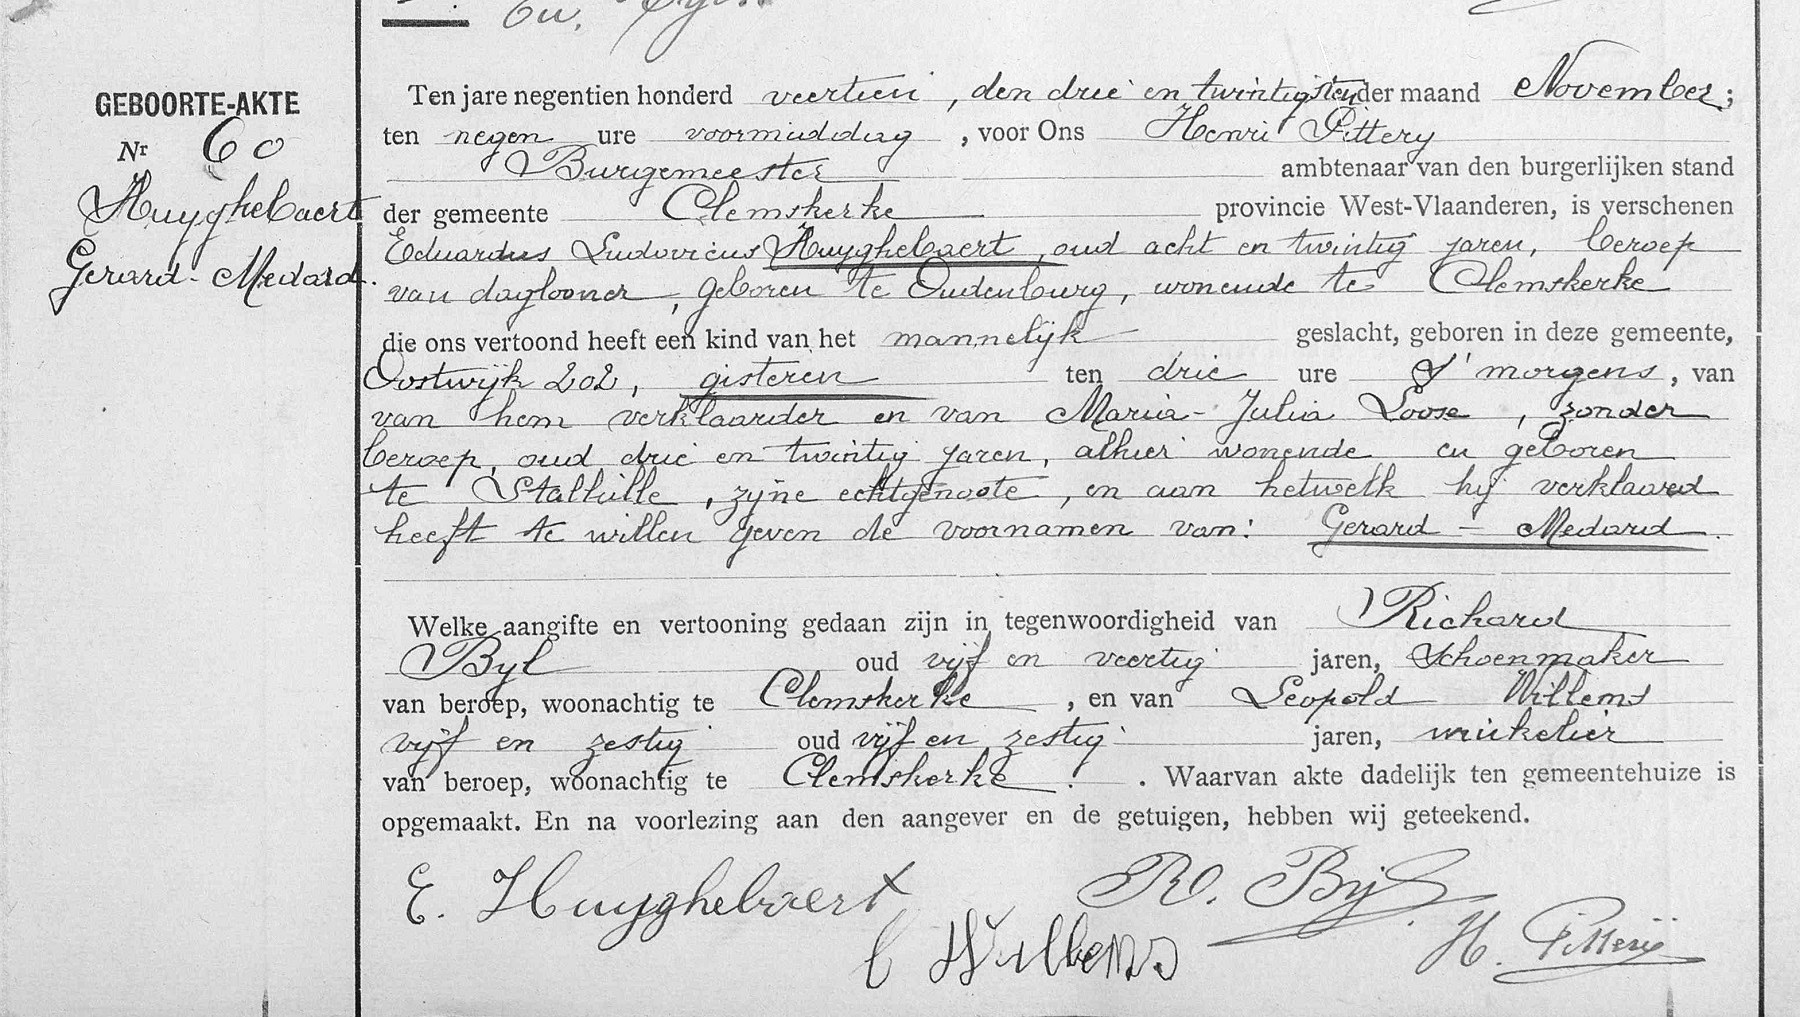 GEBOORTE-AKTE
Nr 60
Huyghebaert
Gerard - Medard.
Ten jare negentien honderd veertien, den drie en twintigsten der maand November;
ten negen ure voormiddag, voor Ons Henri Pittery
Burgemeester ambtenaar van den burgerlijken stand
der gemeente Clemskerke provincie West-Vlaanderen, is verschenen
Eduardus Ludovicus Huyghebaert, oud acht en twintig jaren, beroep
van daglooner, geboren te Oudenburg, wonende te Clemskerke
die ons vertoond heeft een kind van het mannelijk geslacht, geboren in deze gemeente,
Oostwijk 202, gisteren ten drie ure s' morgens, van
van hem verklaarder en van Maria-Julia Loose, zonder
beroep, oud drie en twintig jaren, alhier wonende en geboren
te Stalhille, zijne echtgenoote, en aan hetwelk hij verklaard
heeft te willen geven de voornamen van: Gerard - Medard.
Welke aangifte en vertooning gedaan zijn in tegenwoordigheid van Richard
Byl oud vijf en veertig jaren, Schoenmaker
van beroep, woonachtig te Clemskerke, en van Leopold Willems
vijf en zestig oud vijf en zestig jaren, winkelier
van beroep, woonachtig te Clemskerke. . Waarvan akte dadelijk ten gemeentehuize is
opgemaakt. En na voorlezing aan den aangever en de getuigen, hebben wij geteekend.
E. Huyghebaert R. Byl
L Willems H. Pitterij